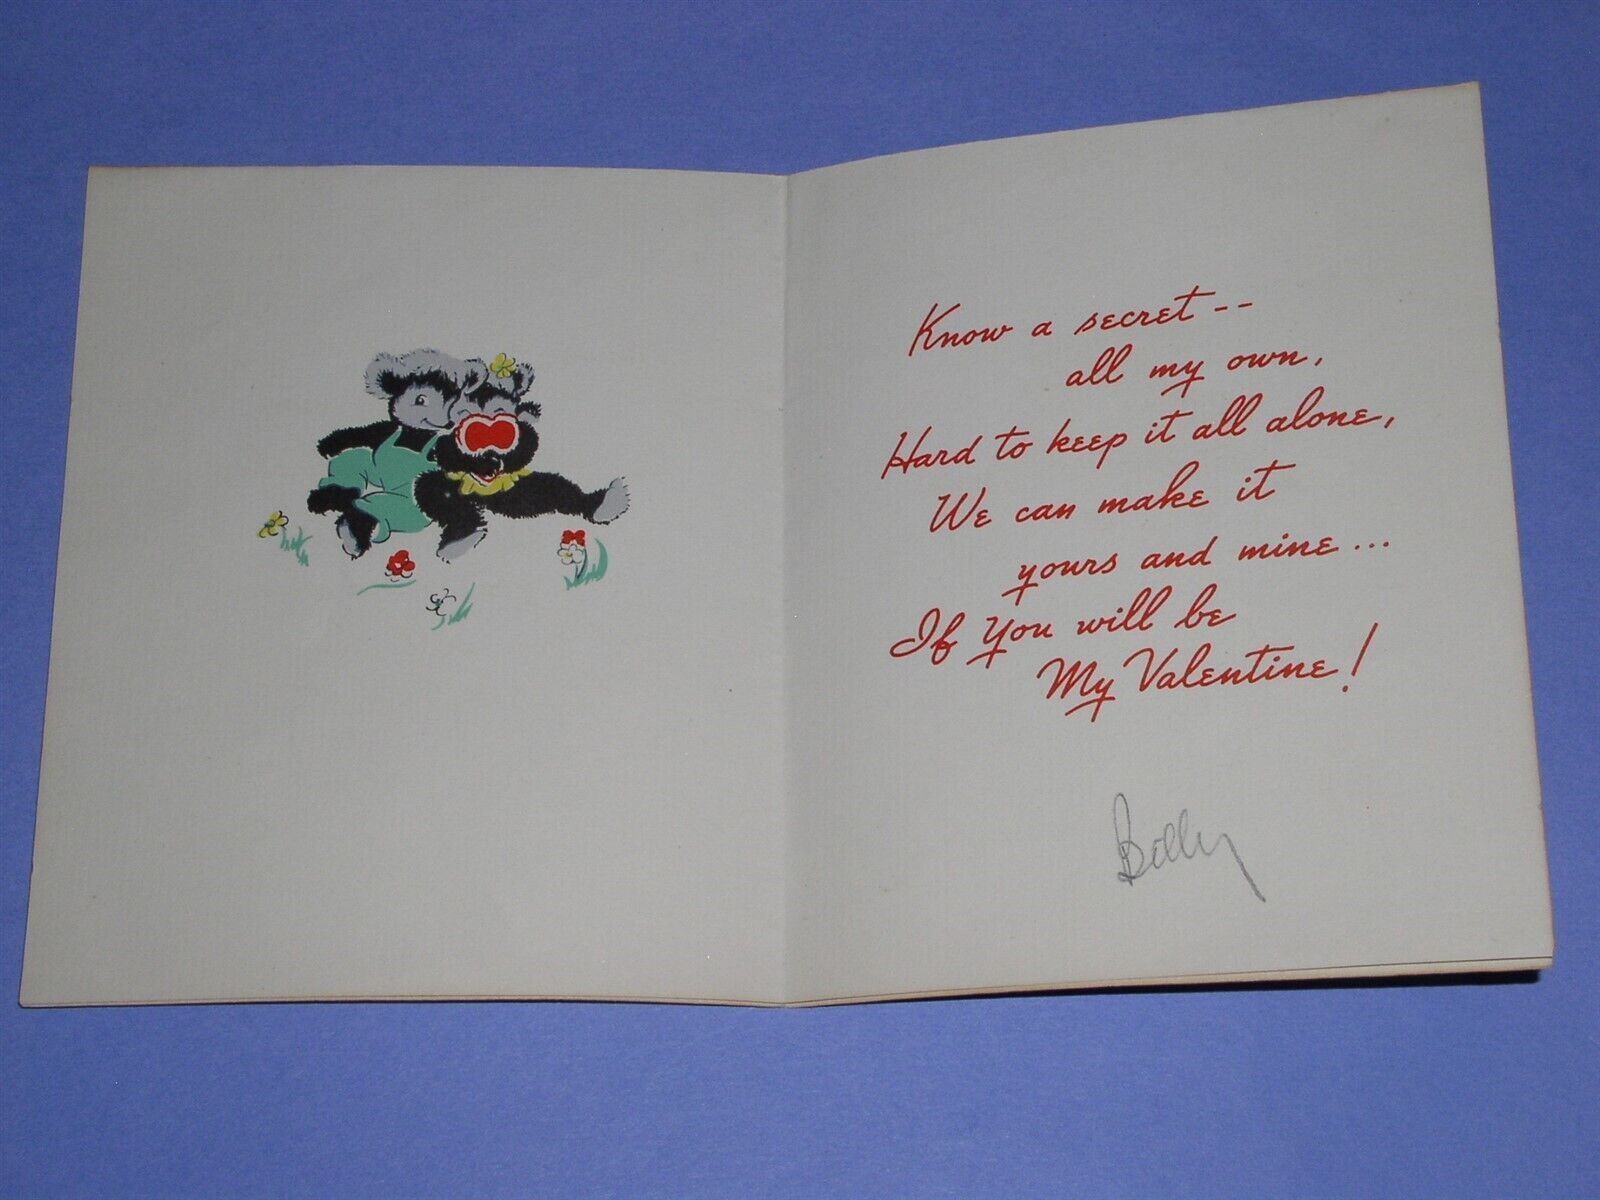 Know a secret--
all my own,
Hard to keep it all alone,
We can make it
yours and mine...
If You will be
My Valentine!
Billy